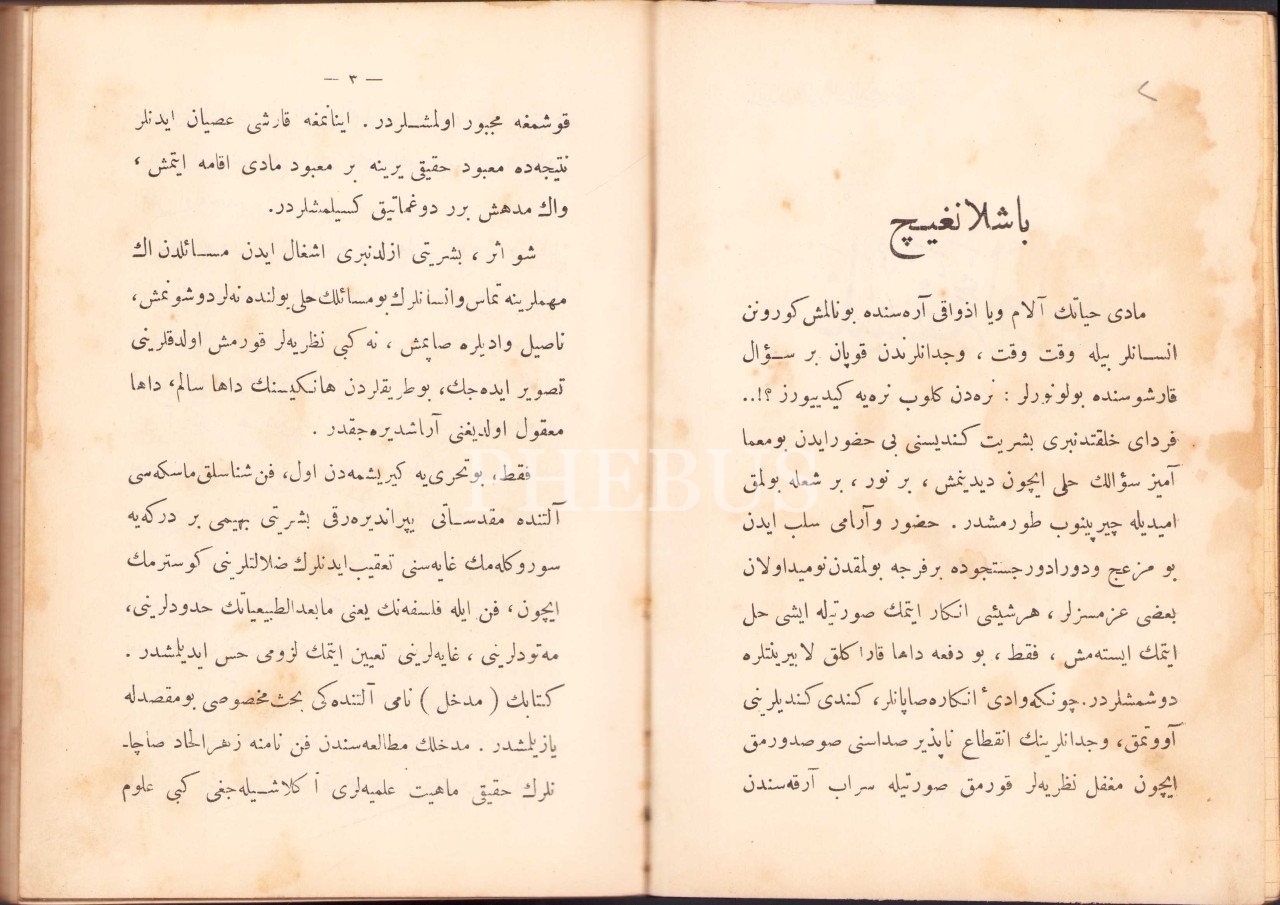 باشلانغيچ
مادى حياتك آلام ويا اذواقى آره‌سنده بوڭالمش كورونن
انسانلر بيله وقت وقت ، وجدانلرندن قوپان بر سؤال
قارشوسنده بولونورلر : نره‌دن كلوب نره‌يه كيدييورز ؟!..
فرداى خلقتدنبرى بشريت كنديسنى بى حضور ايدن بومعما
آميز سؤالك حلى ايچون ديدينمش ، بر نور ، بر شعله بولمق
اميديله چيرپينوب طورمشدر . حضور وآرامى سلب ايدن
بو مزعج ودورادور جستجوده برفرجه بولمقدن نوميد اولان
بعضى عزمسزلر ، هرشيئى انكار ايتمك صورتيله ايشى حل
ايتمك ايسته‌مش ، فقط ، بو دفعه داها قاراكلق لابيرينتلره
دوشمشلردر. چونكه وادئ انكاره صاپانلر، كندى كنديلرينى
آووتمق، وجدانلرينك انقطاع ناپذير صداسنى صوصدورمق
ايچون مغفل نظريه‌لر قورمق صورتيله سراب آرقه‌سندن
— ٣ —
قوشمغه مجبور اولمشلردر . اينانمغه قارشى عصيان ايدنلر
نتيجه‌ده معبود حقيقى يرينه بر معبود مادى اقامه ايتمش ،
واك مدهش برر دوغماتيق كسيلمشلردر.
شو اثر ، بشريتى ازلدنبرى اشغال ايدن مسائلدن اك
مهملرينه تماس وانسانلرك بومسائلك حلى يولنده نه‌لر دوشونمش،
ناصيل واديلره صاپمش ، نه كبى نظريه‌لر قورمش اولدقلرينى
تصوير ايده‌جك، بوطريقلردن هانكيسنك داها سالم، داها
معقول اولديغنى آراشديره‌جقدر .
فقط، بوتحرى‌يه كيريشمه‌دن اول، فن شناسلق ماسكه‌سى
آلتنده مقدساتى ييپرانديره‌رق بشريتى بهيمى بر دركه‌يه
سوروكله‌مك غايه‌سنى تعقيب ايدنلرك ضلالتلرينى كوسترمك
ايچون، فن ايله فلسفه‌نك يعنى مابعدالطبيعياتك حدودلرينى،
مه‌تودلرينى ، غايه‌لرينى تعيين ايتمك لزومى حس ايديلمشدر .
كتابك ( مدخل ) نامى آلتنده‌كى بحث مخصوصى بومقصدله
يازيلمشدر . مدخلك مطالعه‌سندن فن نامنه زهرالحاد صاچا-
نلرك حقيقى ماهيت علميه‌لرى آكلاشيله‌جغى كبى علوم
PHEBUS